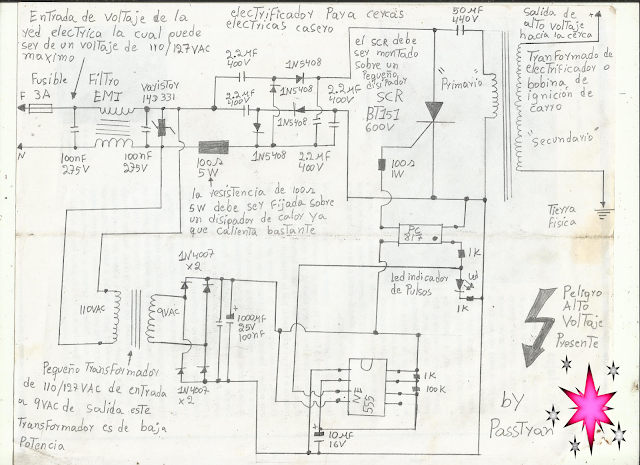 Entrada de voltaje de la
red electrica la cual puede
ser de un voltaje de 110/127VAC
maximo
electrificador para cercas
electricas casero
50MF
440V
Salida de
alto voltaje
hacia la cerca
Fusible
3A
Filtro
EMI
Varistor
14D331
2.2MF
400V
1N5408
el SCR debe
ser montado
sobre un
pequeño
disipador
SCR
BT151
600V
"Primario"
Transformado de
electrificador o
bobina de
ignición de
carro
F
2.2MF
400V
1N5408
1N5408
"Secundario"
N
100nF
275V
100nF
275V
100Ω
5W
1N5408
2.2MF
400V
100Ω
1W
la resistencia de 100Ω
5W debe ser fijada sobre
un disipador de calor ya
que calienta bastante
Tierra
Fisica
PC
817
1K
1N4007
x2
led indicador
de Pulsos
Led
1K
110VAC
9VAC
1000MF
25V
100nF
Peligro
Alto
Voltaje
Presente
Pequeño Transformador
de 110/127VAC de entrada
a 9VAC de salida este
Transformador es de baja
Potencia
1N4007
x2
NE
555
1K
100K
10MF
16V
by
PassTyan